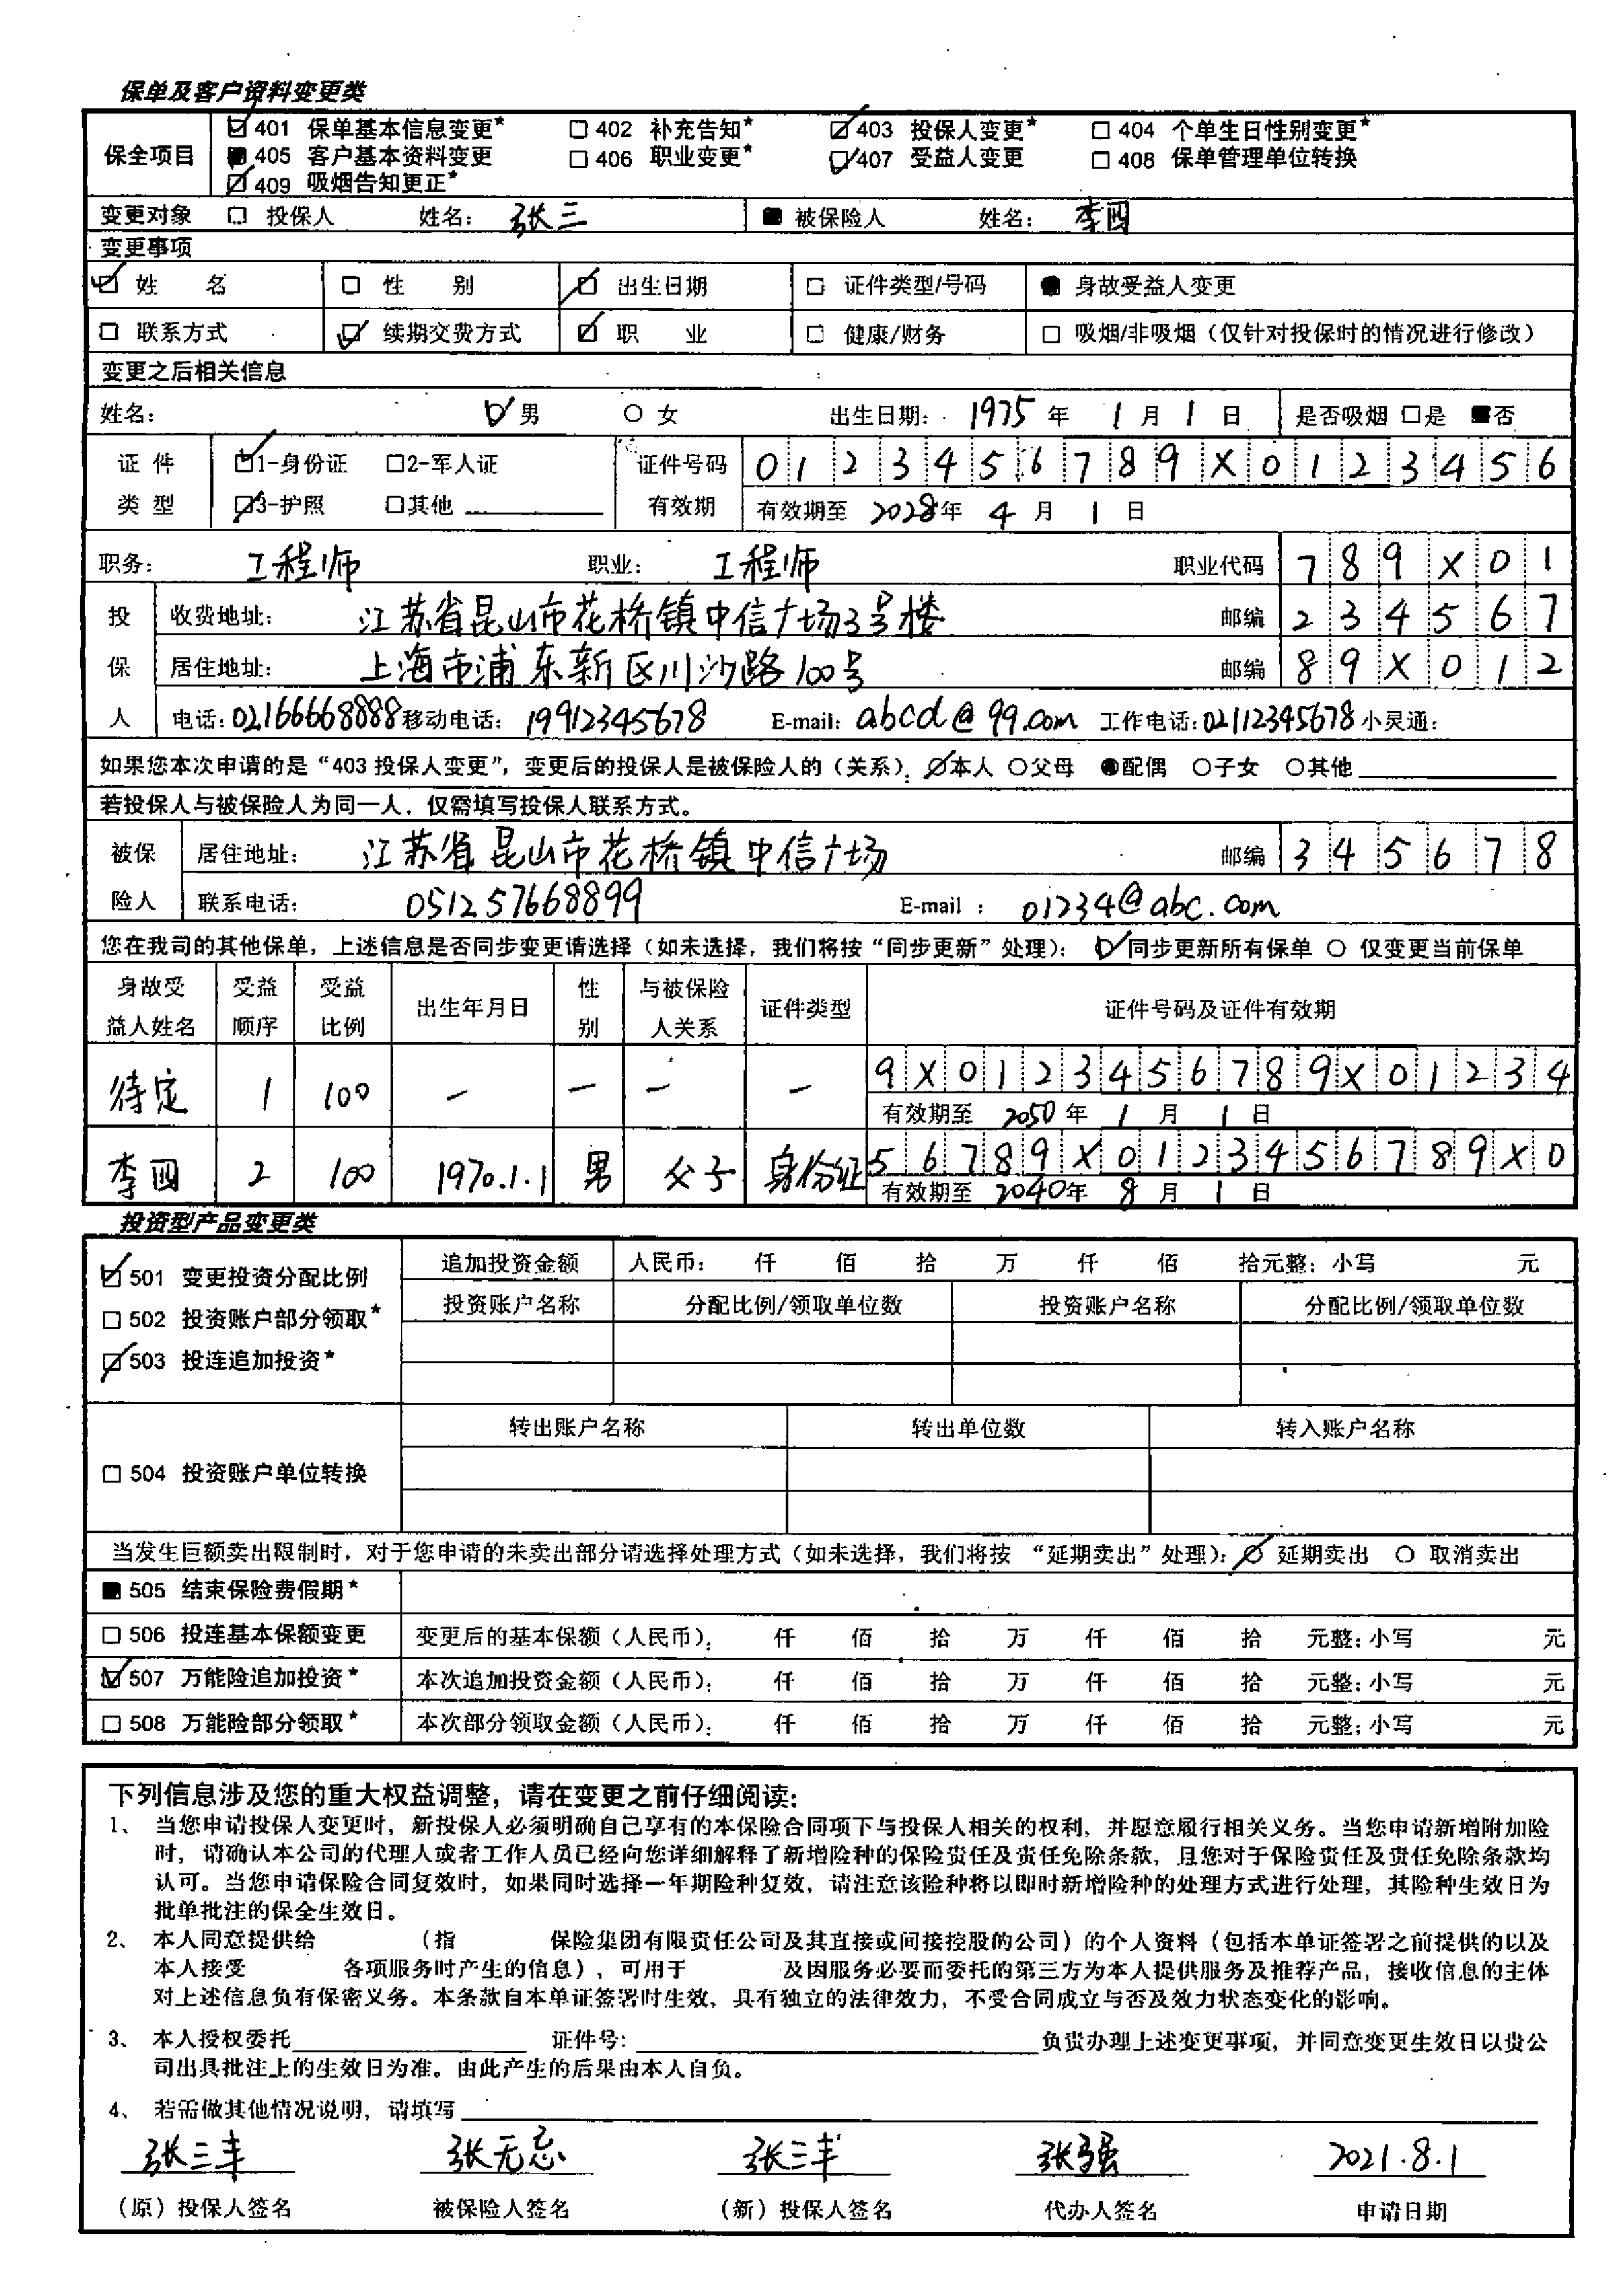 保单及客户资料变更类
保全项目 ☑401 保单基本信息变更* ☐402 补充告知* ☑403 投保人变更* ☐404 个单生日性别变更*
■405 客户基本资料变更 ☐406 职业变更* ☑407 受益人变更 ☐408 保单管理单位转换
☑409 吸烟告知更正*
变更对象 ☐ 投保人 姓名: 张三 ■ 被保险人 姓名: 李四
变更事项
☑ 姓 名 ☐ 性 别 ☑ 出生日期 ☐ 证件类型/号码 ● 身故受益人变更
☐ 联系方式 ☑ 续期交费方式 ☑ 职 业 ☐ 健康/财务 ☐ 吸烟/非吸烟(仅针对投保时的情况进行修改)
变更之后相关信息
姓名: ☑男 ○女 出生日期: 1975 年 1 月 1 日 是否吸烟 ☐是 ■否
证件类型 ☑1-身份证 ☐2-军人证 证件号码 0123456789X0123456
☑3-护照 ☐其他 有效期 有效期至 2028年 4 月 1 日
职务: 工程师 职业: 工程师 职业代码 789X01
投保人 收费地址: 江苏省昆山市花桥镇中信广场3号楼 邮编 234567
居住地址: 上海市浦东新区川沙路100号 邮编 89X012
电话: 02166668888 移动电话: 19912345678 E-mail: abcd@99.com 工作电话: 02112345678 小灵通:
如果您本次申请的是“403 投保人变更”, 变更后的投保人是被保险人的(关系): ☑本人 ○父母 ●配偶 ○子女 ○其他
若投保人与被保险人为同一人, 仅需填写投保人联系方式。
被保险人 居住地址: 江苏省昆山市花桥镇中信广场 邮编 345678
联系电话: 051257668899 E-mail : 01234@abc.com
您在我司的其他保单, 上述信息是否同步变更请选择(如未选择, 我们将按“同步更新”处理): ☑同步更新所有保单 ○ 仅变更当前保单
身故受益人姓名 受益顺序 受益比例 出生年月日 性别 与被保险人关系 证件类型 证件号码及证件有效期
待定 1 100 — — — — 9X0123456789X01234
有效期至 2050 年 1 月 1 日
李四 2 100 1970.1.1 男 父子 身份证 56789X0123456789X0
有效期至 2040年 8 月 1 日
投资型产品变更类
☑501 变更投资分配比例 追加投资金额 人民币: 仟 佰 拾 万 仟 佰 拾元整: 小写 元
☐502 投资账户部分领取* 投资账户名称 分配比例/领取单位数 投资账户名称 分配比例/领取单位数
☑503 投连追加投资*
☐504 投资账户单位转换 转出账户名称 转出单位数 转入账户名称
当发生巨额卖出限制时, 对于您申请的未卖出部分请选择处理方式(如未选择, 我们将按 “延期卖出”处理): ☑ 延期卖出 ○ 取消卖出
■505 结束保险费假期*
☐506 投连基本保额变更 变更后的基本保额(人民币): 仟 佰 拾 万 仟 佰 拾 元整: 小写 元
☑507 万能险追加投资* 本次追加投资金额(人民币): 仟 佰 拾 万 仟 佰 拾 元整: 小写 元
☐508 万能险部分领取* 本次部分领取金额(人民币): 仟 佰 拾 万 仟 佰 拾 元整: 小写 元
下列信息涉及您的重大权益调整, 请在变更之前仔细阅读:
1、 当您申请投保人变更时, 新投保人必须明确自己享有的本保险合同项下与投保人相关的权利, 并愿意履行相关义务。当您申请新增附加险
时, 请确认本公司的代理人或者工作人员已经向您详细解释了新增险种的保险责任及责任免除条款, 且您对于保险责任及责任免除条款均
认可。当您申请保险合同复效时, 如果同时选择一年期险种复效, 请注意该险种将以即时新增险种的处理方式进行处理, 其险种生效日为
批单批注的保全生效日。
2、 本人同意提供给 (指 保险集团有限责任公司及其直接或间接控股的公司)的个人资料(包括本单证签署之前提供的以及
本人接受 各项服务时产生的信息), 可用于 及因服务必要而委托的第三方为本人提供服务及推荐产品, 接收信息的主体
对上述信息负有保密义务。本条款自本单证签署时生效, 具有独立的法律效力, 不受合同成立与否及效力状态变化的影响。
3、 本人授权委托 证件号: 负责办理上述变更事项, 并同意变更生效日以贵公
司出具批注上的生效日为准。由此产生的后果由本人自负。
4、 若需做其他情况说明, 请填写
张三丰 张无忌 张三丰 张强 2021.8.1
(原)投保人签名 被保险人签名 (新)投保人签名 代办人签名 申请日期